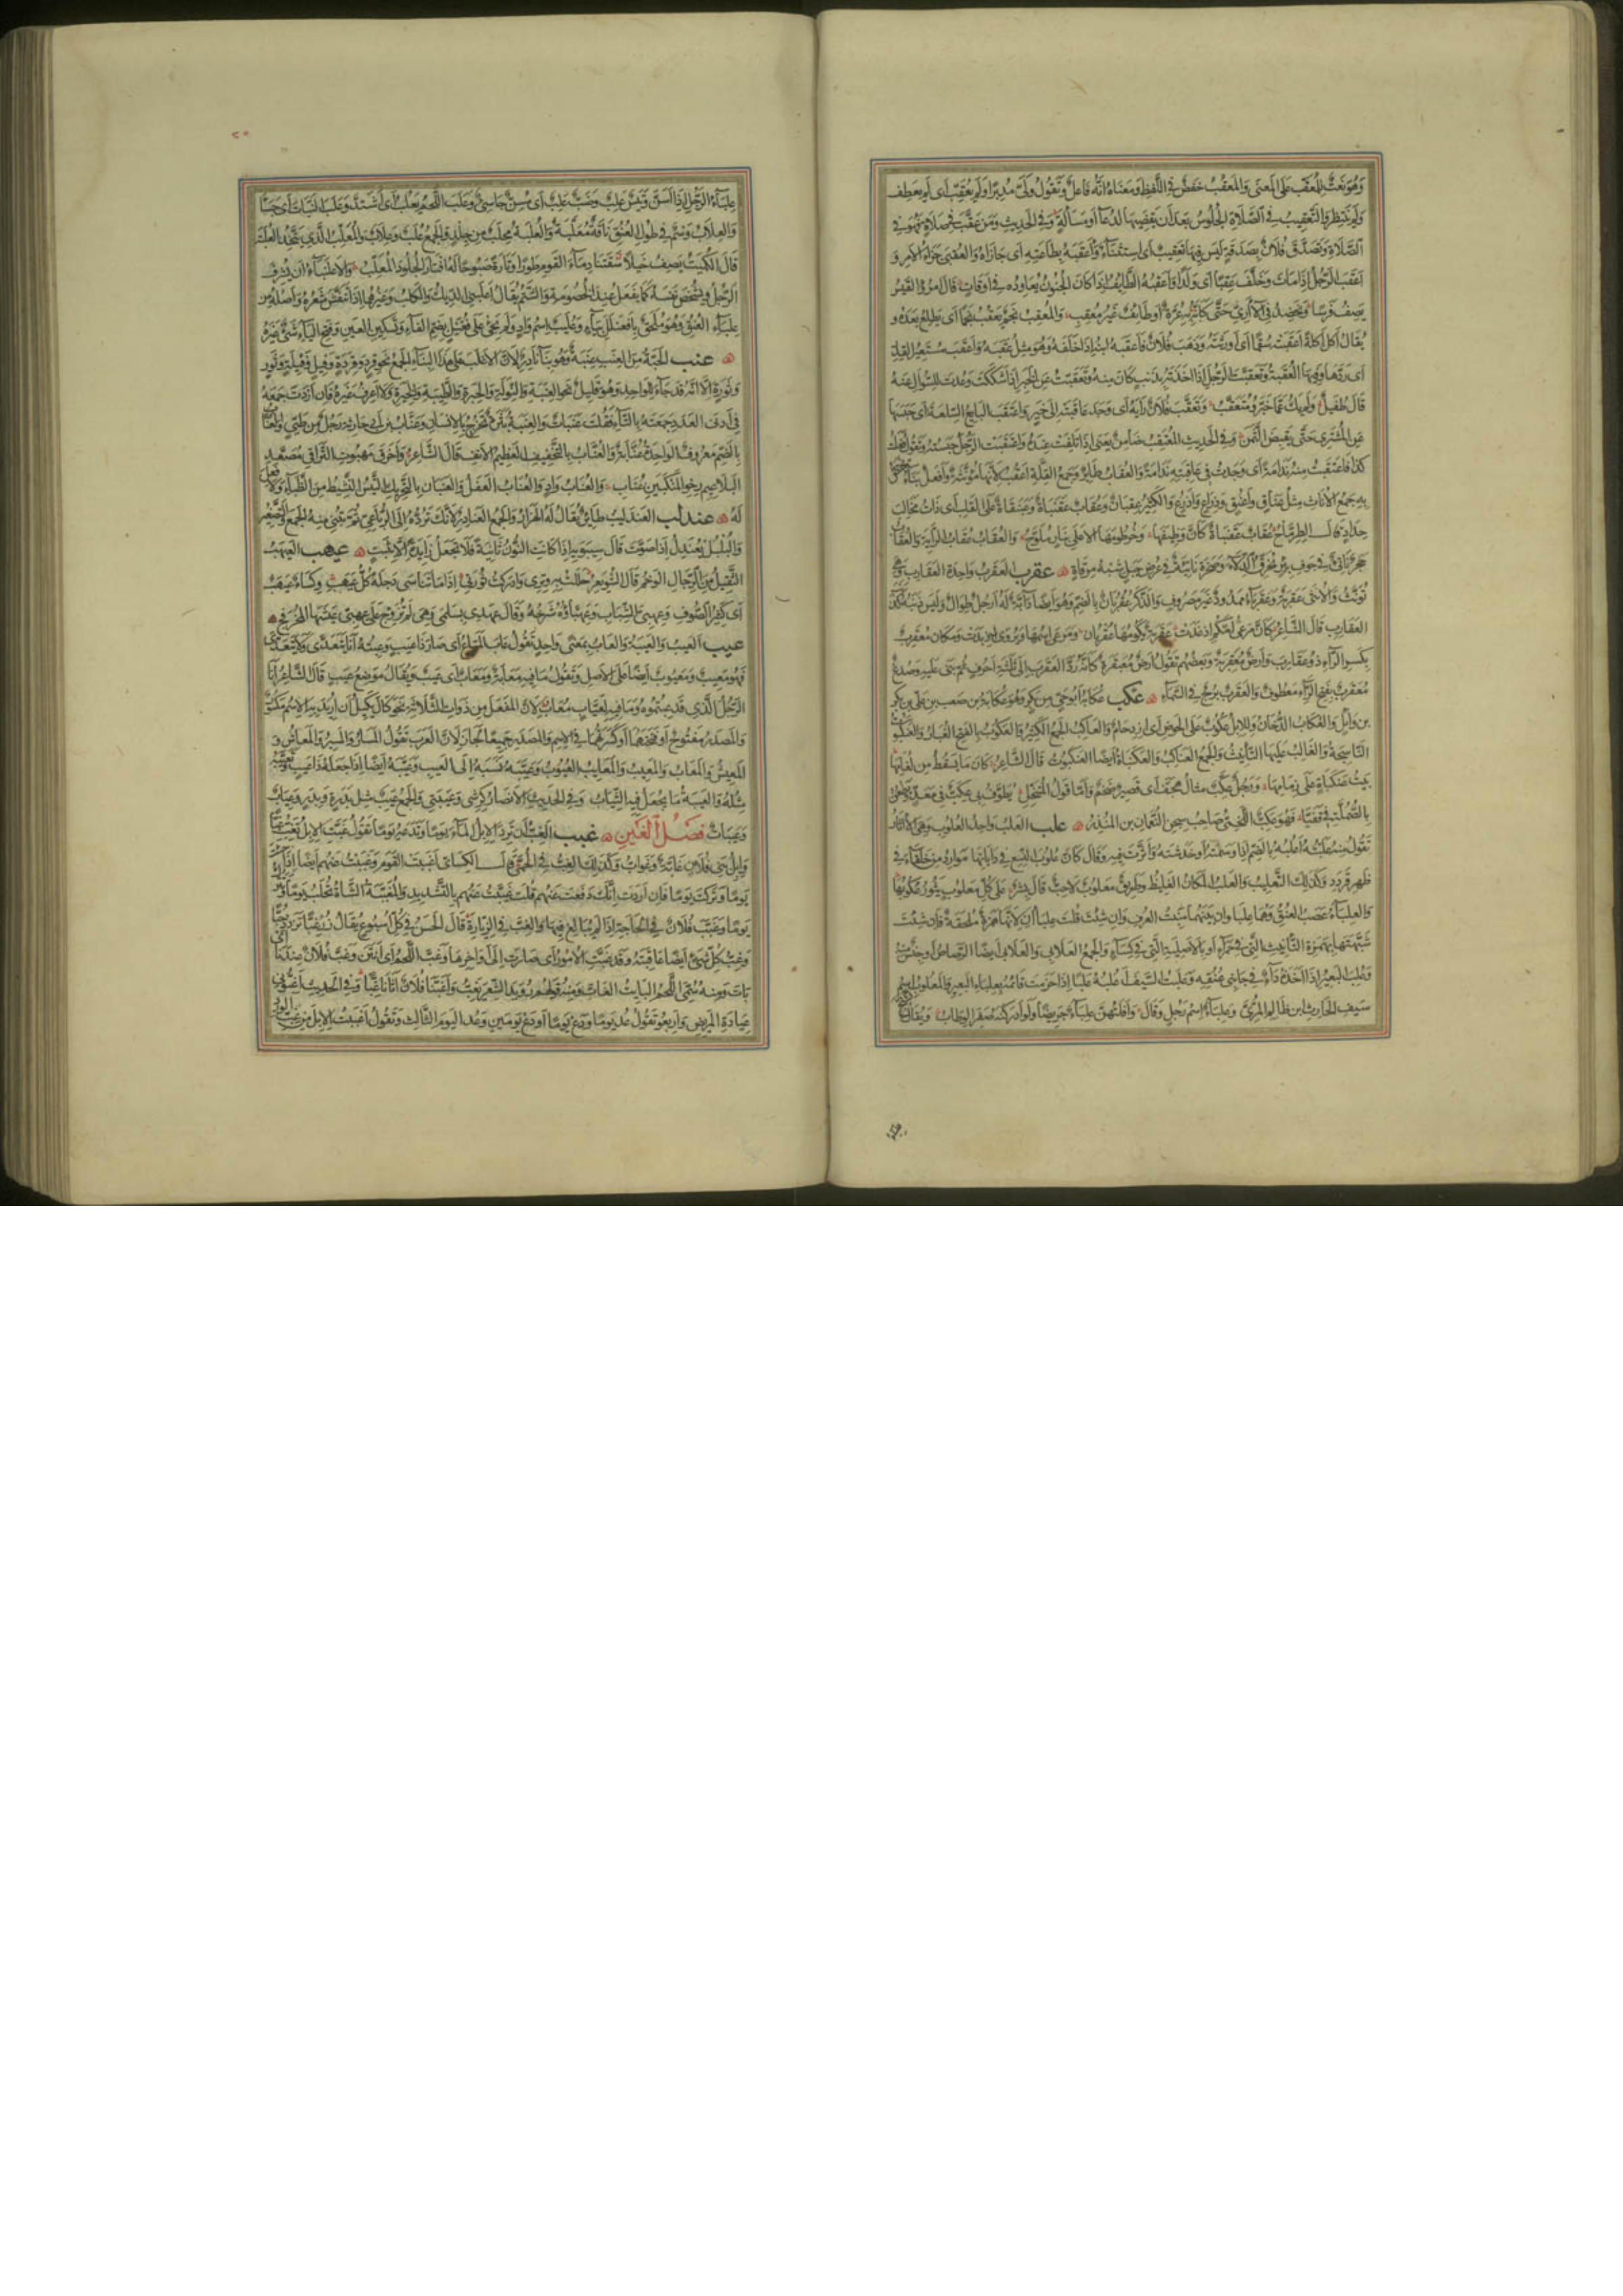 وَهُوَ نَعْتٌ لِلْمُعَقِّبِ عَلَى الْمَعْنَى وَالْمُعَقِّبُ خَفْضٌ فِي اللَّفْظِ وَمَعْنَاهُ أَنَّهُ فَاعِلٌ وَتَقُولُ وَلَّى مُدْبِرًا وَلَمْ يُعَقِّبْ أَيْ لَمْ يَعْطِفْ
وَلَمْ يَنْتَظِرْ وَالتَّعْقِيبُ فِي الصَّلَاةِ الْجُلُوسُ بَعْدَ أَنْ يَقْضِيَهَا لِدُعَاءٍ أَوْ مَسْأَلَةٍ وَفِي الْحَدِيثِ وَمَنْ عَقَّبَ فِي صَلَاةٍ فَهُوَ فِي
الصَّلَاةِ وَتَصَدَّقَ فُلَانٌ بِصَدَقَةٍ لَيْسَ فِيهَا تَعْقِيبٌ أَيْ اسْتِثْنَاءٌ وَأَعْقَبَهُ بِطَاعَتِهِ أَيْ جَازَاهُ وَالْعُقْبَى جَزَاءُ الْأَمْرِ وَ
أَعْقَبَ الرَّجُلُ إِذَا مَاتَ وَخَلَّفَ عَقِبًا أَيْ وَلَدًا وَأَعْقَبَهُ الطَّائِفُ إِذَا كَانَ الْجُنُونُ يُعَاوِدُهُ فِي أَوْقَاتٍ قَالَ امْرُؤُ الْقَيْسِ
يَصِفُ فَرَسًا وَيَخْضِدُ فِي الْآرِيِّ حَتَّى كَأَنَّهُ بِهِ عُرَّةٌ أَوْ طَائِفٌ غَيْرُ مُعْقِبِ وَالْمُعْقِبُ نَجْمٌ يَعْقُبُ نَجْمًا أَيْ يَطْلُعُ بَعْدَهُ وَ
يُقَالُ أَكَلَ أَكْلَةً أَعْقَبَتْهُ سُقْمًا أَيْ أَوْرَثَتْهُ وَذَهَبَ فُلَانٌ فَأَعْقَبَهُ ابْنُهُ إِذَا خَلَفَهُ وَهُوَ مِثْلُ عَقَبَهُ وَأَعْقَبَ مُسْتَعِيرُ الْقِدْرِ
أَيْ رَدَّهَا وَفِيهَا الْعُقْبَةُ وَتَعَقَّبْتُ الرَّجُلَ إِذَا أَخَذْتَهُ بِذَنْبٍ كَانَ مِنْهُ وَتَعَقَّبْتُ عَنِ الْخَبَرِ إِذَا شَكَكْتَ وَعُدْتَ لِلسُّؤَالِ عَنْهُ
قَالَ طُفَيْلٌ وَلَمْ يَكُ عَمَّا خَبَّرُوا مُتَعَقَّبُ وَتَعَقَّبَ فُلَانٌ رَأْيَهُ أَيْ وَجَدَ عَاقِبَتَهُ إِلَى خَيْرٍ وَاعْتَقَبَ الْبَائِعُ السِّلْعَةَ أَيْ حَبَسَهَا
عَنِ الْمُشْتَرِي حَتَّى يَقْبِضَ الثَّمَنَ وَفِي الْحَدِيثِ الْمُعْتَقِبُ ضَامِنٌ يَعْنِي إِذَا تَلِفَتْ عِنْدَهُ وَاعْتَقَبْتُ الرَّجُلَ حَبَسْتُهُ وَتَقُولُ فَعَلْتُ
كَذَا فَاعْتَقَبْتُ مِنْهُ نَدَامَةً أَيْ وَجَدْتُ فِي عَاقِبَتِهِ نَدَامَةً وَالْعُقَابُ طَائِرٌ وَجَمْعُ الْقِلَّةِ أَعْقُبٌ لِأَنَّهَا مُؤَنَّثَةٌ وَأَفْعُلٌ بِنَاءٌ يَخْتَصُّ
بِهِ جَمْعُ الْإِنَاثِ مِثْلُ عَنَاقٍ وَأَعْنُقٍ وَذِرَاعٍ وَأَذْرُعٍ وَالْكَثِيرُ عِقْبَانٌ وَعُقَابٌ عَقَنْبَاةٌ وَعَبَنْقَاةٌ عَلَى الْقَلْبِ أَيْ ذَاتُ مَخَالِبَ
حِدَادٍ قَالَ الطِّرِمَّاحُ عُقَابٌ عَقَنْبَاةٌ كَأَنَّ وَظِيفَهَا وَخُرْطُومَهَا الْأَعْلَى بِنَارٍ مُلَوَّحُ وَالْعُقَابُ عُقَابُ الرَّايَةِ وَالْعُقَابُ
حَجَرٌ نَاتِئٌ فِي جَوْفِ بِئْرٍ يُخَرِّقُ الدِّلَاءَ وَصَخْرَةٌ نَاتِئَةٌ فِي عُرْضِ جَبَلٍ شِبْهُ مِرْقَاةٍ عقرب الْعَقْرَبُ وَاحِدَةُ الْعَقَارِبِ وَهِيَ
تُؤَنَّثُ وَالْأُنْثَى عَقْرَبَةٌ وَعَقْرَبَاءُ مَمْدُودٌ غَيْرُ مَصْرُوفٍ وَالذَّكَرُ عُقْرُبَانٌ بِالضَّمِّ وَهُوَ أَيْضًا دَابَّةٌ لَهُ أَرْجُلٌ طِوَالٌ وَلَيْسَ ذَنَبُهُ كَذَنَبِ
الْعَقَارِبِ قَالَ الشَّاعِرُ كَأَنَّ مَرْعَى أُمَّكُمْ إِذْ غَدَتْ عَقْرَبَةٌ يَكُومُهَا عُقْرُبَانُ وَمَرْعَى اسْمُهَا وَيُرْوَى إِذْ بَدَتْ وَمَكَانٌ مُعَقْرِبٌ
بِكَسْرِ الرَّاءِ ذُو عَقَارِبَ وَأَرْضٌ مُعَقْرِبَةٌ وَبَعْضُهُمْ يَقُولُ أَرْضٌ مَعْقَرَةٌ كَأَنَّهُ رَدَّ الْعَقْرَبَ إِلَى ثَلَاثَةِ أَحْرُفٍ ثُمَّ بَنَى عَلَيْهِ وَصُدْغٌ
مُعَقْرَبٌ بِفَتْحِ الرَّاءِ مَعْطُوفٌ وَالْعَقْرَبُ بُرْجٌ فِي السَّمَاءِ عكب عُكَابَةُ أَبُو حَيٍّ مِنْ بَكْرٍ وَهُوَ عُكَابَةُ بْنُ صَعْبِ بْنِ عَلِيِّ بْنِ بَكْرِ
بْنِ وَائِلٍ وَالْعُكَابُ الدُّخَانُ وَلِلْإِبِلِ عُكُوبٌ عَلَى الْحَوْضِ أَيْ ازْدِحَامٌ وَالْعَاكِبُ الْجَمْعُ الْكَثِيرُ وَالْعَكُوبُ بِالْفَتْحِ الْغُبَارُ وَالْعَنْكَبُوتُ
النَّاسِجَةُ وَالْغَالِبُ عَلَيْهَا التَّأْنِيثُ وَالْجَمْعُ الْعَنَاكِبُ وَالْعَنْكَبَاةُ أَيْضًا الْعَنْكَبُوتُ قَالَ الشَّاعِرُ كَأَنَّ مَا يَسْقُطُ مِنْ لُغَامِهَا
بَيْتُ عَنْكَبَاةٍ عَلَى زِمَامِهَا وَرَجُلٌ عِكَبٌّ مِثَالُ هِجَفٍّ أَيْ قَصِيرٌ ضَخْمٌ وَأَمَّا قَوْلُ الْمُتَنَخِّلِ يُطَوِّفُ بِي عِكَبٌّ فِي مَعَدٍّ وَيَطْعُنُ
بِالصُّمُلَّةِ فِي قَفَيَّا فَهُوَ عِكَبٌّ اللَّخْمِيُّ صَاحِبُ سِجْنِ النُّعْمَانِ بْنِ الْمُنْذِرِ علب الْعَلْبُ وَاحِدُ الْعُلُوبِ وَهِيَ الْآثَارُ
تَقُولُ مِنْهُ عَلَبْتُهُ أَعْلُبُهُ بِالضَّمِّ إِذَا وَسَمْتَهُ أَوْ خَدَشْتَهُ وَأَثَّرْتَ فِيهِ وَقَالَ كَأَنَّ عُلُوبَ النِّسْعِ فِي دَأَيَاتِهَا مَوَارِدُ مِنْ خَلْقَاءَ فِي
ظَهْرِ قَرْدَدِ وَكَذَلِكَ التَّعْلِيبُ وَالْعَلْبُ الْمَكَانُ الْغَلِيظُ وَطَرِيقٌ مَعْلُوبٌ لَاحِبٌ قَالَ بِشْرٌ عَلَى كُلِّ مَعْلُوبٍ يَثُورُ عَكُوبُهَا
وَالْعِلْبَاءُ عَصَبُ الْعُنُقِ وَهُمَا عِلْبَاوَانِ بَيْنَهُمَا مَنْبِتُ الْعُرْفِ وَإِنْ شِئْتَ قُلْتَ عِلْبَاآنِ لِأَنَّهَا هَمْزَةٌ مُلْحَقَةٌ فَإِنْ شِئْتَ
شَبَّهْتَهَا بِهَمْزَةِ التَّأْنِيثِ الَّتِي فِي حَمْرَاءَ أَوْ بِالْأَصْلِيَّةِ الَّتِي فِي كِسَاءٍ وَالْجَمْعُ الْعَلَابِي وَالْعَلَابِيُّ أَيْضًا الرَّصَاصُ أَوْ جِنْسٌ مِنْهُ
وَعَلِبَ الْبَعِيرُ إِذَا أَخَذَهُ دَاءٌ فِي جَانِبَيْ عُنُقِهِ وَعَلَبْتُ السَّيْفَ أَعْلُبُهُ عَلْبًا إِذَا حَزَمْتَ قَائِمَهُ بِعِلْبَاءِ الْبَعِيرِ وَالْمَعْلُوبُ اسْمُ
سَيْفِ الْحَارِثِ بْنِ ظَالِمٍ الْمُرِّيِّ وَعِلْبَاءُ اسْمُ رَجُلٍ وَقَالَ وَأَفْلَتَهُنَّ عِلْبَاءٌ جَرِيضًا وَلَوْ أَدْرَكْنَهُ صَفِرَ الْوِطَابُ وَيُقَالُ
عِلْبَاءُ الرَّجُلِ إِذَا أَسَنَّ وَتَيْسٌ عَلِبٌ وَضَبٌّ عَلِبٌ أَيْ مُسِنٌّ جَاسِئٌ وَعَلِبَ اللَّحْمُ يَعْلَبُ أَيْ اشْتَدَّ وَعَلِبَ النَّبَاتُ أَيْ جَسَأَ
وَالْعِلَابُ وَسْمٌ فِي طُولِ الْعُنُقِ نَاقَةٌ مُعَلَّبَةٌ وَالْعُلْبَةُ مِحْلَبٌ مِنْ جِلْدٍ وَالْجَمْعُ عُلَبٌ وَعِلَابٌ وَالْمُعَلِّبُ الَّذِي يَتَّخِذُ الْعُلْبَةَ
قَالَ الْكُمَيْتُ يَصِفُ خَيْلًا سَقَتْنَا دِمَاءَ الْقَوْمِ طَوْرًا وَتَارَةً صَبُوحًا لَهُ اقْتَارَ الْجُلُودَ الْمُعَلِّبُ وَالِاعْلِنْبَاءُ أَنْ يُشْرِفَ
الرَّجُلُ وَيُشْخِصَ نَفْسَهُ كَمَا يَفْعَلُ عِنْدَ الْخُصُومَةِ وَالشَّتْمِ يُقَالُ اعْلَنْبَى الدِّيكُ وَالْكَلْبُ وَغَيْرُهُمَا إِذَا تَنَفَّشَ شَعْرُهُ وَأَصْلُهُ مِنْ
عِلْبَاءِ الْعُنُقِ وَهُوَ مُلْحَقٌ بِافْعَنْلَلَ بِيَاءٍ وَعُلْيَبُ اسْمُ وَادٍ وَلَمْ يَجِئْ عَلَى فُعْيَلٍ بِضَمِّ الْفَاءِ وَتَسْكِينِ الْعَيْنِ وَفَتْحِ الْيَاءِ شَيْءٌ غَيْرُهُ
عنب الْحَبَّةُ مِنَ الْعِنَبِ عِنَبَةٌ وَهُوَ بِنَاءٌ نَادِرٌ لِأَنَّ الْأَغْلَبَ عَلَى هَذَا الْبِنَاءِ الْجَمْعُ نَحْوُ قِرْدٍ وَقِرَدَةٍ وَفِيلٍ وَفِيَلَةٍ وَثَوْرٍ
وَثِوَرَةٍ إِلَّا أَنَّهُ قَدْ جَاءَ لِلْوَاحِدِ وَهُوَ قَلِيلٌ نَحْوُ الْعِنَبَةِ وَالتِّوَلَةِ وَالْحِبَرَةِ وَالطِّيَبَةِ وَالْخِيَرَةِ وَلَا أَعْرِفُ غَيْرَهُ فَإِنْ أَرَدْتَ جَمْعَهُ
فِي أَدْنَى الْعَدَدِ جَمَعْتَهُ بِالتَّاءِ فَقُلْتَ عِنَبَاتٌ وَالْعِنَبَةُ بَثْرَةٌ تَخْرُجُ بِالْإِنْسَانِ وَعَنَّابُ بْنُ أَبِي حَارِثَةَ رَجُلٌ مِنْ طَيِّئٍ وَالْعُنَّابُ
بِالضَّمِّ مَعْرُوفٌ الْوَاحِدَةُ عُنَّابَةٌ وَالْعُنَابُ بِالتَّخْفِيفِ الْعَظِيمُ الْأَنْفِ قَالَ الشَّاعِرُ وَأَخْرَقَ مَهْبُوتِ التَّرَاقِي مُصَعَّدِ
الْبَلَاعِيمِ رِخْوِ الْمَنْكِبَيْنِ عُنَابِ وَالْعُنَابُ وَادٍ وَالْعُنَابُ الْعَفَلُ وَالْعَنَبَانُ بِالتَّحْرِيكِ التَّيْسُ النَّشِيطُ مِنَ الظِّبَاءِ وَلَا فِعْلَ
لَهُ عندلب الْعَنْدَلِيبُ طَائِرٌ يُقَالُ لَهُ الْهَزَارُ وَالْجَمْعُ الْعَنَادِلُ لِأَنَّكَ تَرُدُّهُ إِلَى الرُّبَاعِيِّ ثُمَّ تَبْنِي مِنْهُ الْجَمْعَ وَالتَّصْغِيرَ
وَالْبُلْبُلُ يُعَنْدِلُ إِذَا صَوَّتَ قَالَ سِيبَوَيْهِ إِذَا كَانَتِ النُّونُ ثَانِيَةً فَلَا تُجْعَلُ زَائِدَةً إِلَّا بِثَبَتٍ عيهب الْعَيْهَبُ
الثَّقِيلُ مِنَ الرِّجَالِ الْوَخِمُ قَالَ الشُّوَيْعِرُ حَلَلْتُ بِهِ وِتْرِي وَأَدْرَكْتُ ثُؤْرَتِي إِذَا مَا تَنَاسَى ذَحْلَهُ كُلُّ عَيْهَبِ وَكِسَاءٌ عَيْهَبٌ
أَيْ كَثِيرُ الصُّوفِ وَعِهِبَّى الشَّبَابِ وَعِهِبَّاؤُهُ شَرْخُهُ وَقَالَ عَهْدِي بِسَلْمَى وَهِيَ لَمْ تَزَوَّجْ عَلَى عِهِبَّى عَيْشِهَا الْمُخَرْفَجِ
عيب الْعَيْبُ وَالْعَيْبَةُ وَالْعَابُ بِمَعْنًى وَاحِدٍ تَقُولُ عَابَ الْمَتَاعُ أَيْ صَارَ ذَا عَيْبٍ وَعِبْتُهُ أَنَا يَتَعَدَّى وَلَا يَتَعَدَّى
فَهُوَ مَعِيبٌ وَمَعْيُوبٌ أَيْضًا عَلَى الْأَصْلِ وَتَقُولُ مَا فِيهِ مَعَابَةٌ وَمَعَابٌ أَيْ عَيْبٌ وَيُقَالُ مَوْضِعُ عَيْبٍ قَالَ الشَّاعِرُ أَنَا
الرَّجُلُ الَّذِي قَدْ عِبْتُمُوهُ وَمَا فِيهِ لِعَيَّابٍ مَعَابُ لِأَنَّ الْمَفْعَلَ مِنْ ذَوَاتِ الثَّلَاثَةِ نَحْوُ كَالَ يَكِيلُ إِنْ أُرِيدَ بِهِ الِاسْمُ مَكْسُورٌ
وَالْمَصْدَرُ مَفْتُوحٌ وَلَوْ فَتَحْتَهُمَا أَوْ كَسَرْتَهُمَا فِي الِاسْمِ وَالْمَصْدَرِ جَمِيعًا لَجَازَ لِأَنَّ الْعَرَبَ تَقُولُ الْمَسَارُ وَالْمَسِيرُ وَالْمَعَاشُ وَ
الْمَعِيشُ وَالْمَعَابُ وَالْمَعِيبُ وَالْمَعَايِبُ الْعُيُوبُ وَعَيَّبَهُ نَسَبَهُ إِلَى الْعَيْبِ وَعَيَّبَهُ أَيْضًا إِذَا جَعَلَهُ ذَا عَيْبٍ وَتَعَيَّبَهُ
مِثْلُهُ وَالْعَيْبَةُ مَا يُجْعَلُ فِيهِ الثِّيَابُ وَفِي الْحَدِيثِ الْأَنْصَارُ كَرِشِي وَعَيْبَتِي وَالْجَمْعُ عِيَبٌ مِثْلُ بَدْرَةٍ وَبِدَرٍ وَعِيَابٌ
وَعَيْبَاتٌ فَصْلُ الْغَيْنِ غبب الْغِبُّ أَنْ تَرِدَ الْإِبِلُ الْمَاءَ يَوْمًا وَتَدَعَهُ يَوْمًا تَقُولُ غَبَّتِ الْإِبِلُ تَغِبُّ غِبًّا
وَإِبِلُ بَنِي فُلَانٍ غَابَّةٌ وَغَوَابُّ وَكَذَلِكَ الْغِبُّ فِي الْحُمَّى قَالَ الْكِسَائِيُّ أَغْبَبْتُ الْقَوْمَ وَغَبَبْتُ عَنْهُمْ أَيْضًا إِذَا جِئْتَ
يَوْمًا وَتَرَكْتَ يَوْمًا فَإِنْ أَرَدْتَ أَنَّكَ دَفَعْتَ عَنْهُمْ قُلْتَ غَبَّبْتُ عَنْهُمْ بِالتَّشْدِيدِ وَالْمُغَبَّبَةُ الشَّاةُ تُحْلَبُ يَوْمًا وَتُتْرَكُ
يَوْمًا وَغَبَّبَ فُلَانٌ فِي الْحَاجَةِ إِذَا لَمْ يُبَالِغْ فِيهَا وَالْغِبُّ فِي الزِّيَارَةِ قَالَ الْحَسَنُ فِي كُلِّ أُسْبُوعٍ يُقَالُ زُرْ غِبًّا تَزْدَدْ حُبًّا
وَغِبُّ كُلِّ شَيْءٍ أَيْضًا عَاقِبَتُهُ وَقَدْ غَبَّتِ الْأُمُورُ أَيْ صَارَتْ إِلَى أَوَاخِرِهَا وَغَبَّ اللَّحْمُ أَيْ أَنْتَنَ وَغَبَّ فُلَانٌ عِنْدَنَا أَيْ
بَاتَ وَمِنْهُ سُمِّيَ اللَّحْمُ الْبَائِتُ الْغَابَّ وَمِنْهُ قَوْلُهُمْ رُوَيْدَ الشِّعْرَ يَغِبُّ وَأَغَبَّنَا فُلَانٌ أَتَانَا غِبًّا وَفِي الْحَدِيثِ أَغِبُّوا فِي
عِيَادَةِ الْمَرِيضِ وَأَرْبِعُوا تَقُولُ عُدْ يَوْمًا وَدَعْ يَوْمًا أَوْ دَعْ يَوْمَيْنِ وَعُدِ الْيَوْمَ الثَّالِثَ وَتَقُولُ أَغْبَبْتُ الْإِبِلَ مِنْ غِبِّ الْوِرْدِ